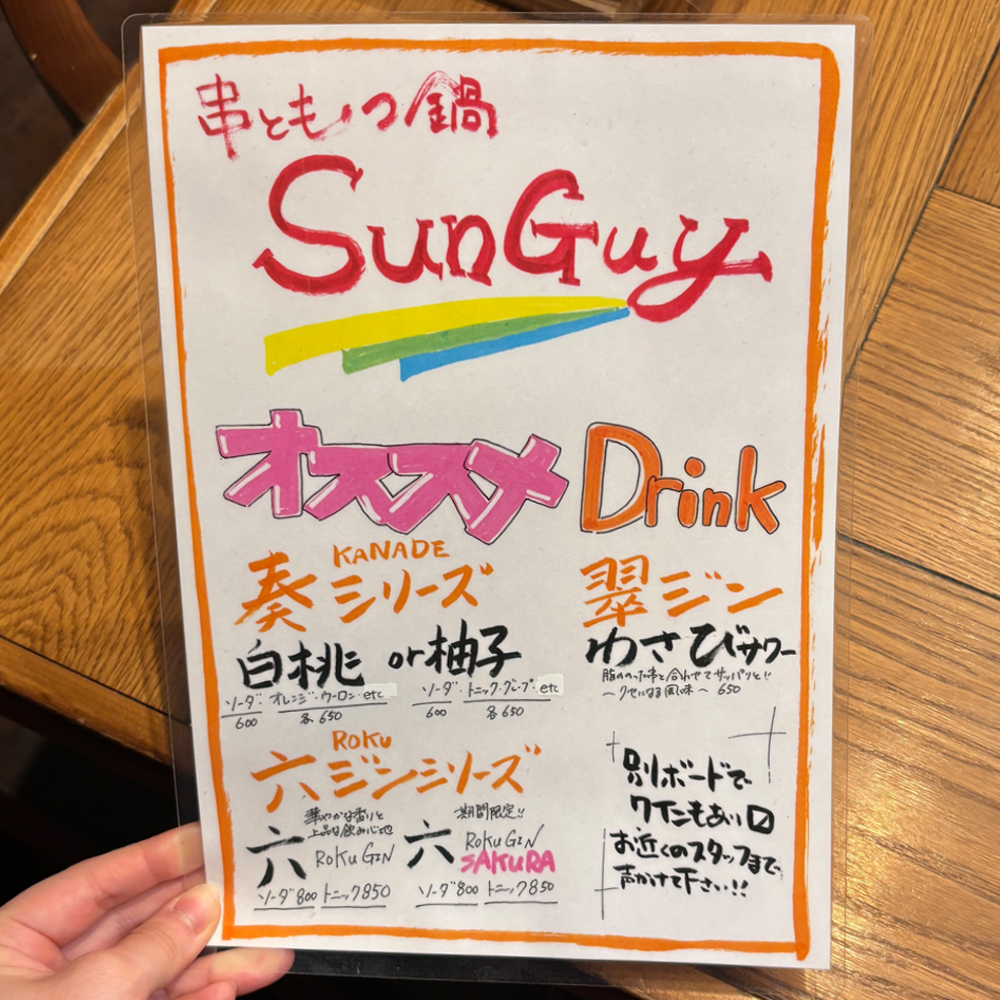 串ともつ鍋
SunGuy
オススメ Drink
KANADE
奏シリーズ
白桃 or 柚子
ソーダ・オレンジ・ウーロン・etc
600 各650
ソーダ・トニック・グレープ・etc
600 各650
翠ジン
わさびサワー
脂ののった串と合わせてサッパリと!!
〜クセになる風味〜 650
ROKU
六ジンシリーズ
華やかな香りと
上品な飲み心地
六 ROKU GIN
ソーダ800 トニック850
期間限定!!
六 ROKU GIN
SAKURA
ソーダ800 トニック850
別ボードで
ワインもあり〼
お近くのスタッフまで、
声かけて下さい!!